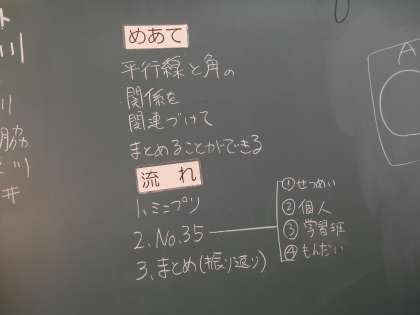 めあて
平行線と角の
関係を
関連づけて
まとめることができる
流れ
1、ミニプリ
2、No.35
①せつめい
②個人
③学習班
④もんだい
3、まとめ(振り返り)
川
脇
井
A